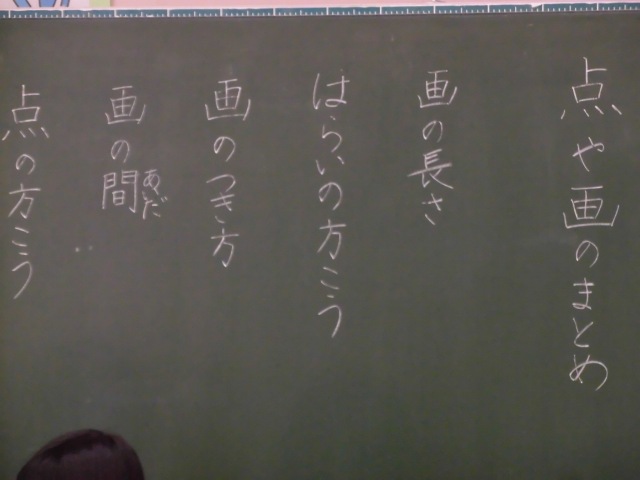 点や画のまとめ
画の長さ
はらいの方こう
画のつき方
画の間
あいだ
点の方こう